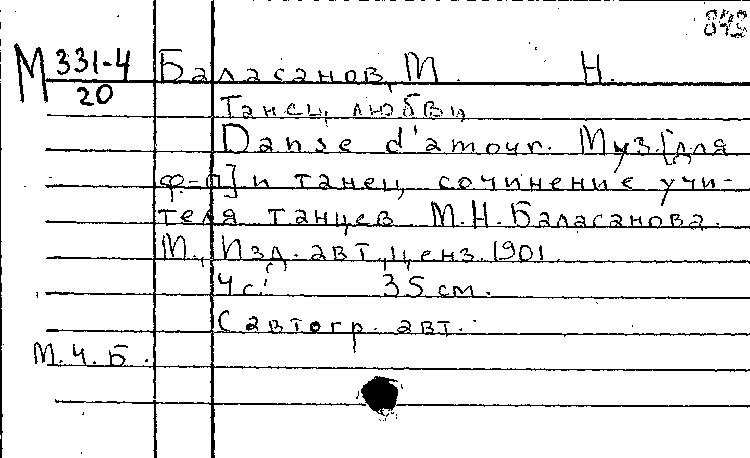 843
М 331-4
20
Баласанов, М. Н.
Танец любви
Danse d'amour. Муз. [для
ф-п] и танец, сочинение учи-
теля танцев М.Н. Баласанова.
М., Изд. авт., ценз. 1901
4 с. 35 см.
С автогр. авт.
М.Ч.Б.